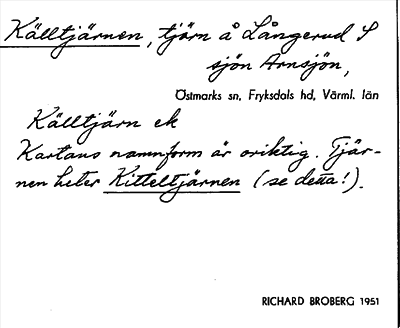 Källtjärnen, tjärn å Långerud S
sjön Arnsjön,
Östmarks sn, Fryksdals hd, Värml. län
Källtjärn ek
Kartans namnform är oriktig. Tjär-
nen heter Kitteltjärnen (se detta!).
RICHARD BROBERG 1951